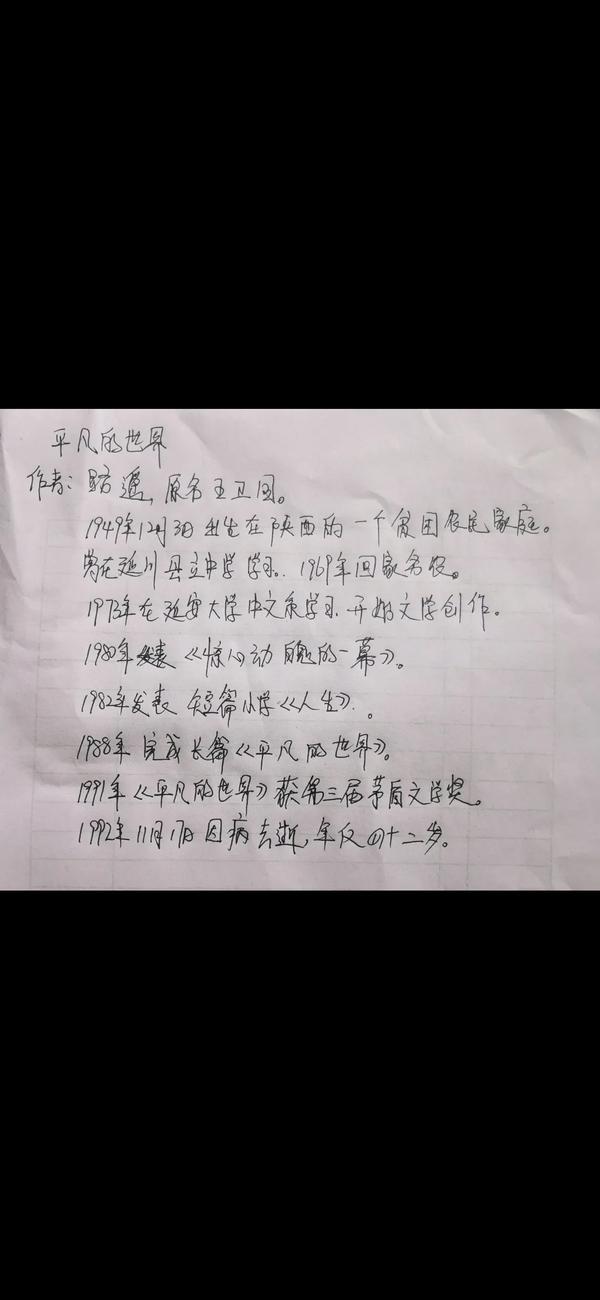 平凡的世界
作者：路遥，原名王卫国。
1949年12月3日出生在陕西的一个贫困农民家庭。
曾在延川县立中学学习．1969年回家务农。
1973年在延安大学中文系学习开始文学创作。
1980年发表《惊心动魄的一幕》。
1982年发表短篇小学《人生》．。
1988年完成长篇《平凡的世界》。
1991年《平凡的世界》获第三届茅盾文学奖。
1992年11月17日因病去逝，年仅四十二岁。